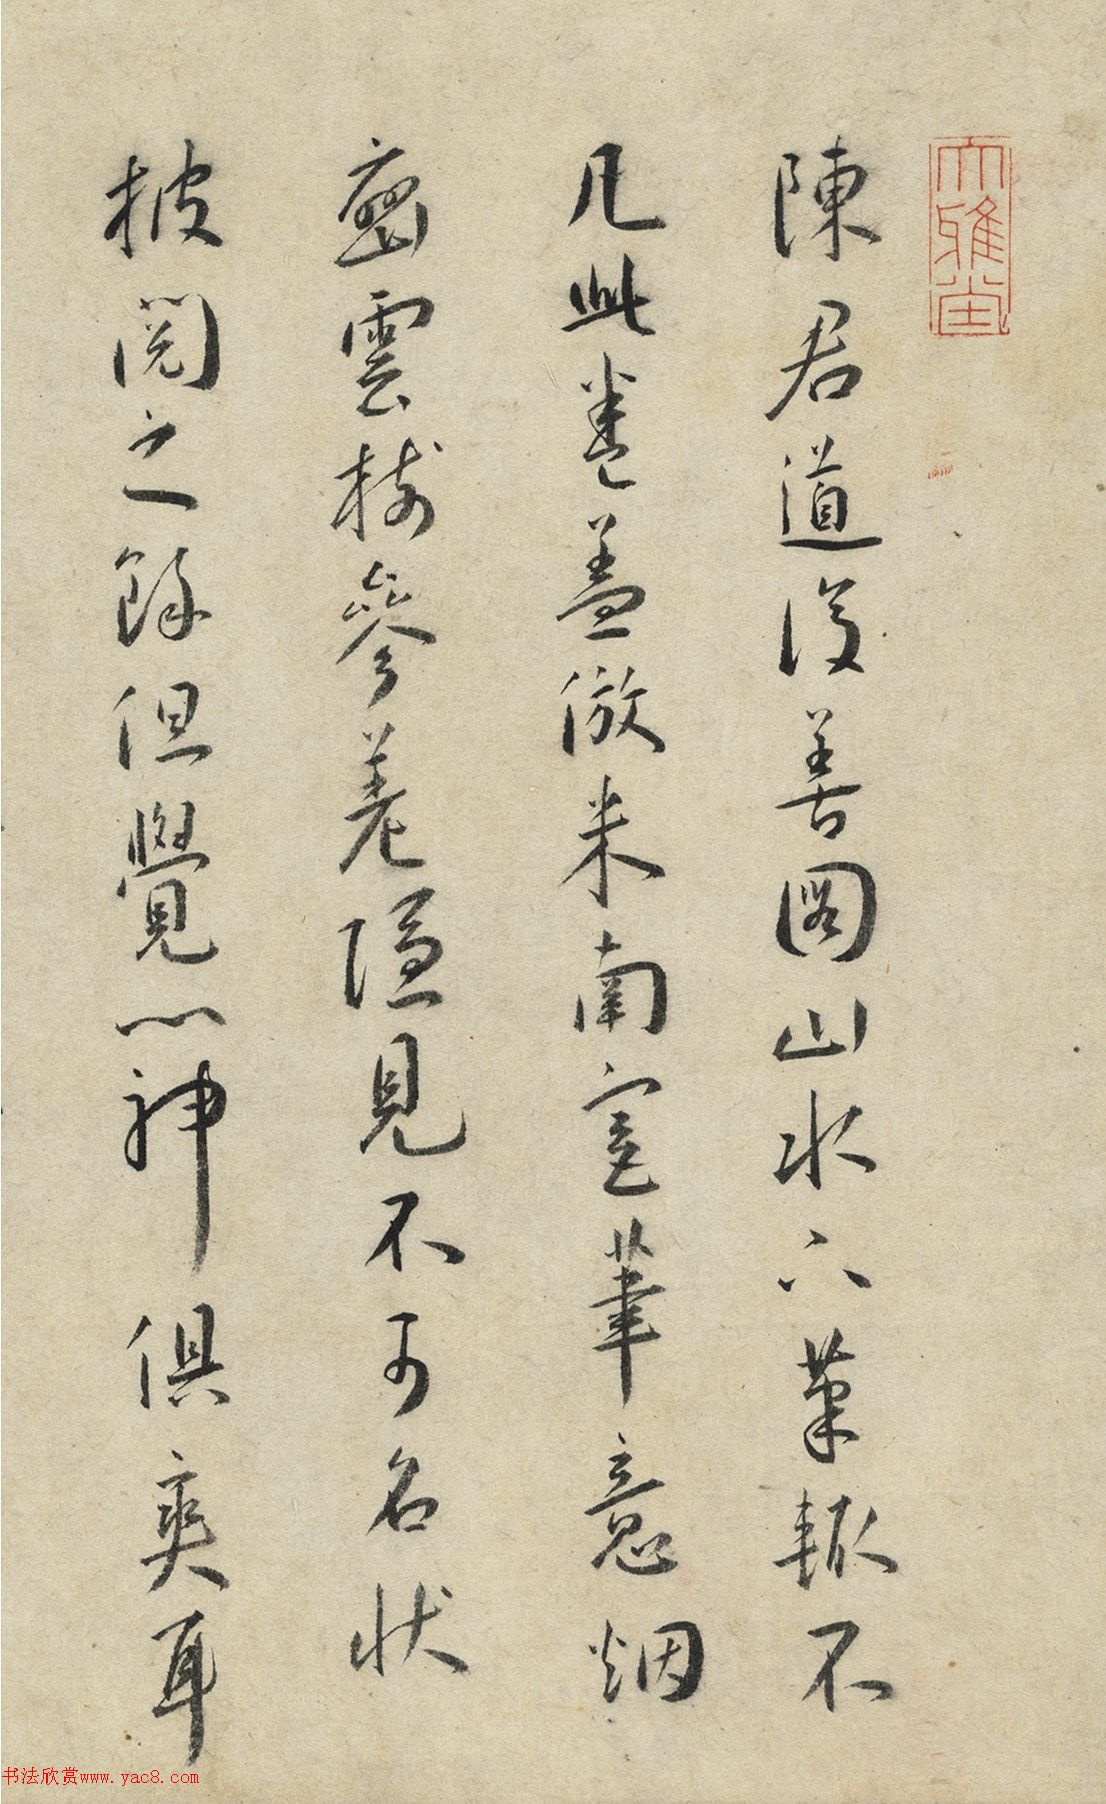 大雅堂
陳君道復善圖山水下筆輒不
凡此卷蓋倣米南宮筆意烟
巒雲樹參差隱見不可名狀
披閱之餘但覺心神俱爽耳
书法欣赏www.yac8.com